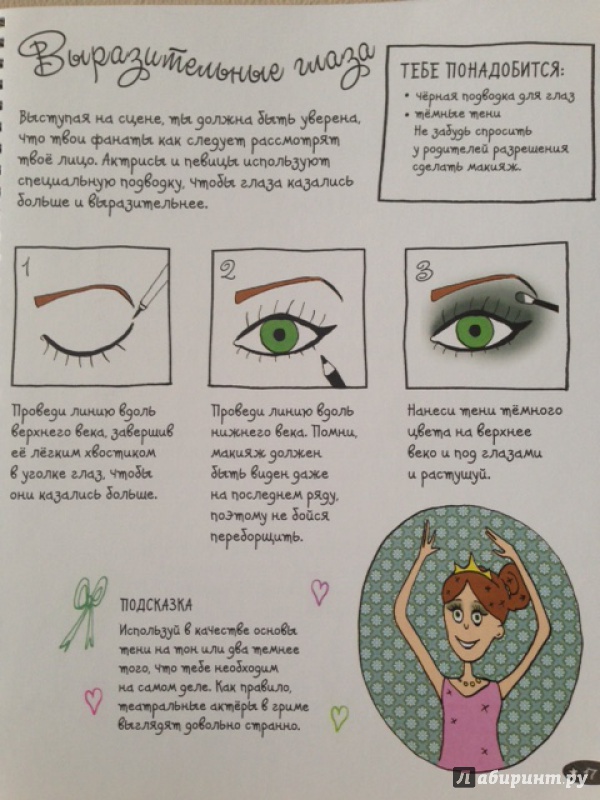 Выразительные глаза
Выступая на сцене, ты должна быть уверена,
что твои фанаты как следует рассмотрят
твоё лицо. Актрисы и певицы используют
специальную подводку, чтобы глаза казались
больше и выразительнее.
ТЕБЕ ПОНАДОБИТСЯ:
• чёрная подводка для глаз
• тёмные тени
Не забудь спросить
у родителей разрешения
сделать макияж.
1
Проведи линию вдоль
верхнего века, завершив
её лёгким хвостиком
в уголке глаз, чтобы
они казались больше.
2
Проведи линию вдоль
нижнего века. Помни,
макияж должен
быть виден даже
на последнем ряду,
поэтому не бойся
переборщить.
3
Нанеси тени тёмного
цвета на верхнее
веко и под глазами
и растушуй.
ПОДСКАЗКА
Используй в качестве основы
тени на тон или два темнее
того, что тебе необходим
на самом деле. Как правило,
театральные актёры в гриме
выглядят довольно странно.
Лабиринт.ру